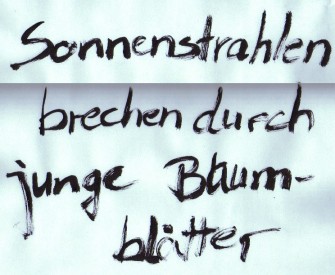 Sonnenstrahlen
brechen durch
junge Baum-
blätter